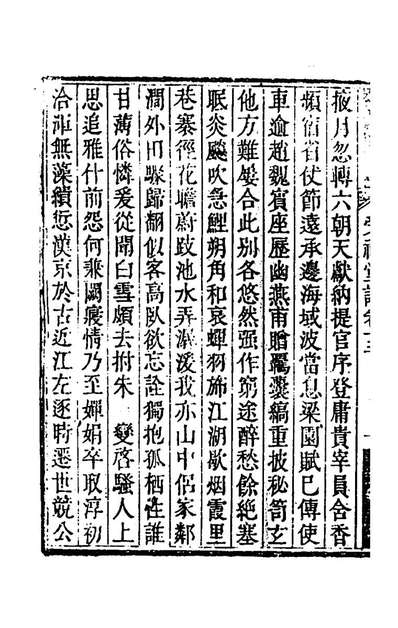 掖月忽轉六朝天獻納提官序登庸貴宰員含香
頻宿省仗節遠承邊海域波當息梁園賦已傳使
車逾趙魏賓座歷幽燕甫贈羈囊縞重披秘笥玄
他方難屢合此别各悠然强作窮途醉愁餘絶塞
眠炎飈吹急鯉朔角和哀蟬羽斾江湖歇烟霞里
巷褰徑花曕蔚跂池水弄潺湲我亦山中侣家鄰
澗外田驟歸翻似客高臥欲忘詮獨抱孤栖性誰
甘薄俗憐爰從聞白雪頗去拊朱 變啓騷人上
思追雅什前怨何乘闢寢情乃至嬋娟卒取淳初
洽非無藻績愆漢京於古近江左逐時遷世競公